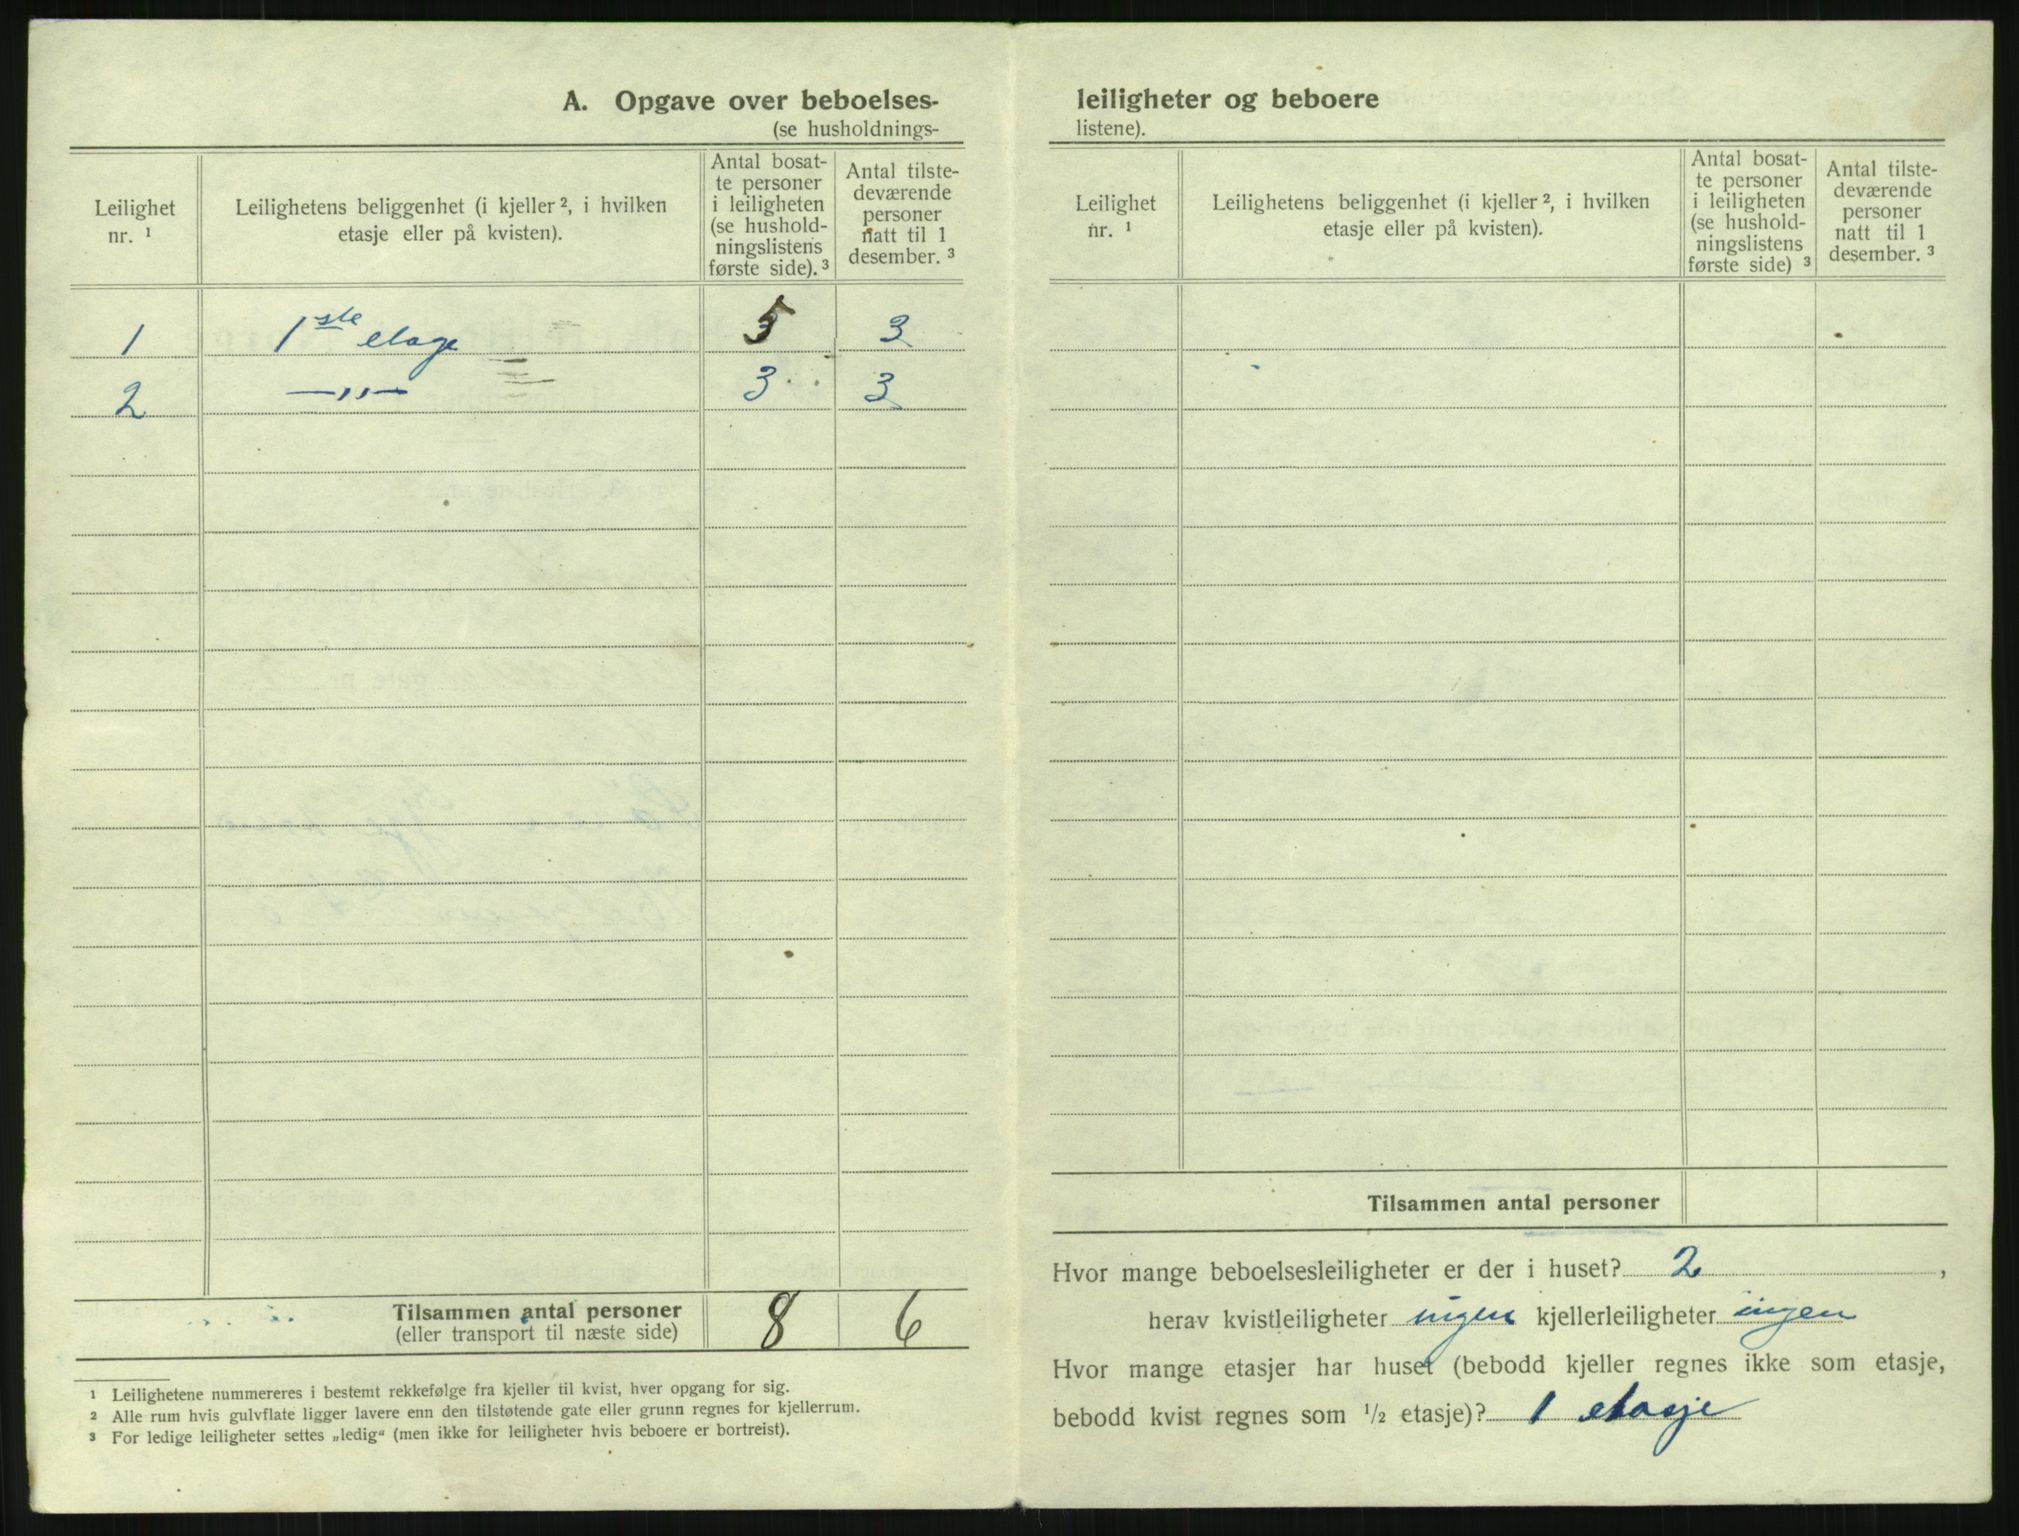 A. Opgave over beboelses-
(se husholdnings-
Leilighet nr. ¹
Leilighetens beliggenhet (i kjeller ², i hvilken etasje eller på kvisten).
Antal bosat-
te personer
i leiligheten
(se hushold-
ningslistens
første side). ³
Antal tilste-
deværende
personer
natt til 1
desember. ³
1 1ste etage 5 3
2 —„— 3 3
Tilsammen antal personer 8 6
(eller transport til næste side)
¹ Leilighetene nummereres i bestemt rekkefølge fra kjeller til kvist, hver opgang for sig.
² Alle rum hvis gulvflate ligger lavere enn den tilstøtende gate eller grunn regnes for kjellerrum.
³ For ledige leiligheter settes „ledig“ (men ikke for leiligheter hvis beboere er bortreist).
leiligheter og beboere
listene).
Leilighet nr. ¹
Leilighetens beliggenhet (i kjeller ², i hvilken etasje eller på kvisten).
Antal bosat-
te personer
i leiligheten
(se hushold-
ningslistens
første side) ³
Antal tilste-
deværende
personer
natt til 1
desember. ³
Tilsammen antal personer
Hvor mange beboelsesleiligheter er der i huset? 2,
herav kvistleiligheter ingen kjellerleiligheter ingen
Hvor mange etasjer har huset (bebodd kjeller regnes ikke som etasje,
bebodd kvist regnes som ½ etasje)? 1 etasje